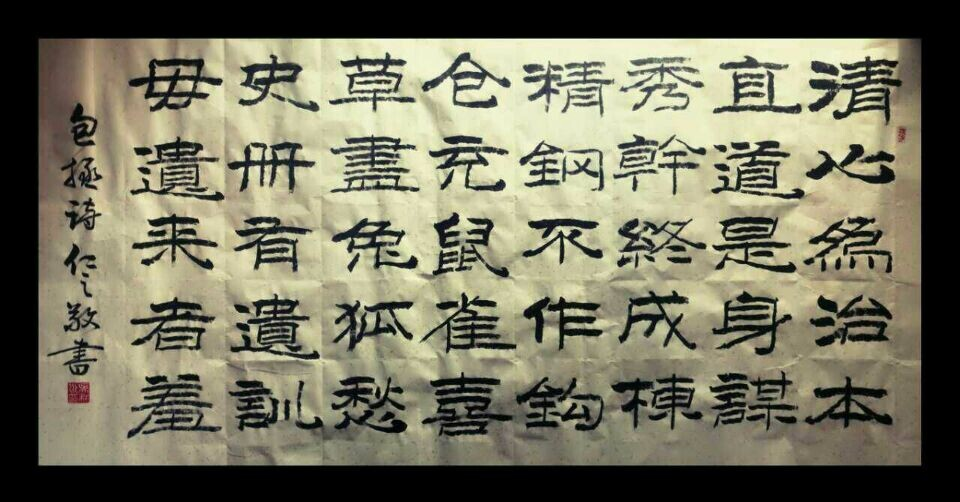 清心為治本
直道是身謀
秀幹終成棟
精鋼不作鈎
仓充鼠雀喜
草盡兔狐愁
史册有遺訓
毋遺来者羞
包拯詩仁之敬書